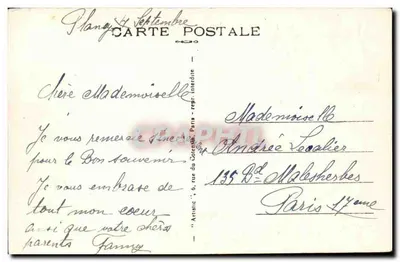 Plancy 4 Septembre
CARTE POSTALE
Chère Mademoiselle
Je vous remercie
pour le Bon souvenir
Je vous embrasse de
tout mon coeur
ainsi que votre chers
parents Fanny
"Artistic", 6, rue du Cotentin, Paris - repr. interdite
Mademoiselle
Andrée Levalier
135 Bd Malesherbes
Paris 17eme